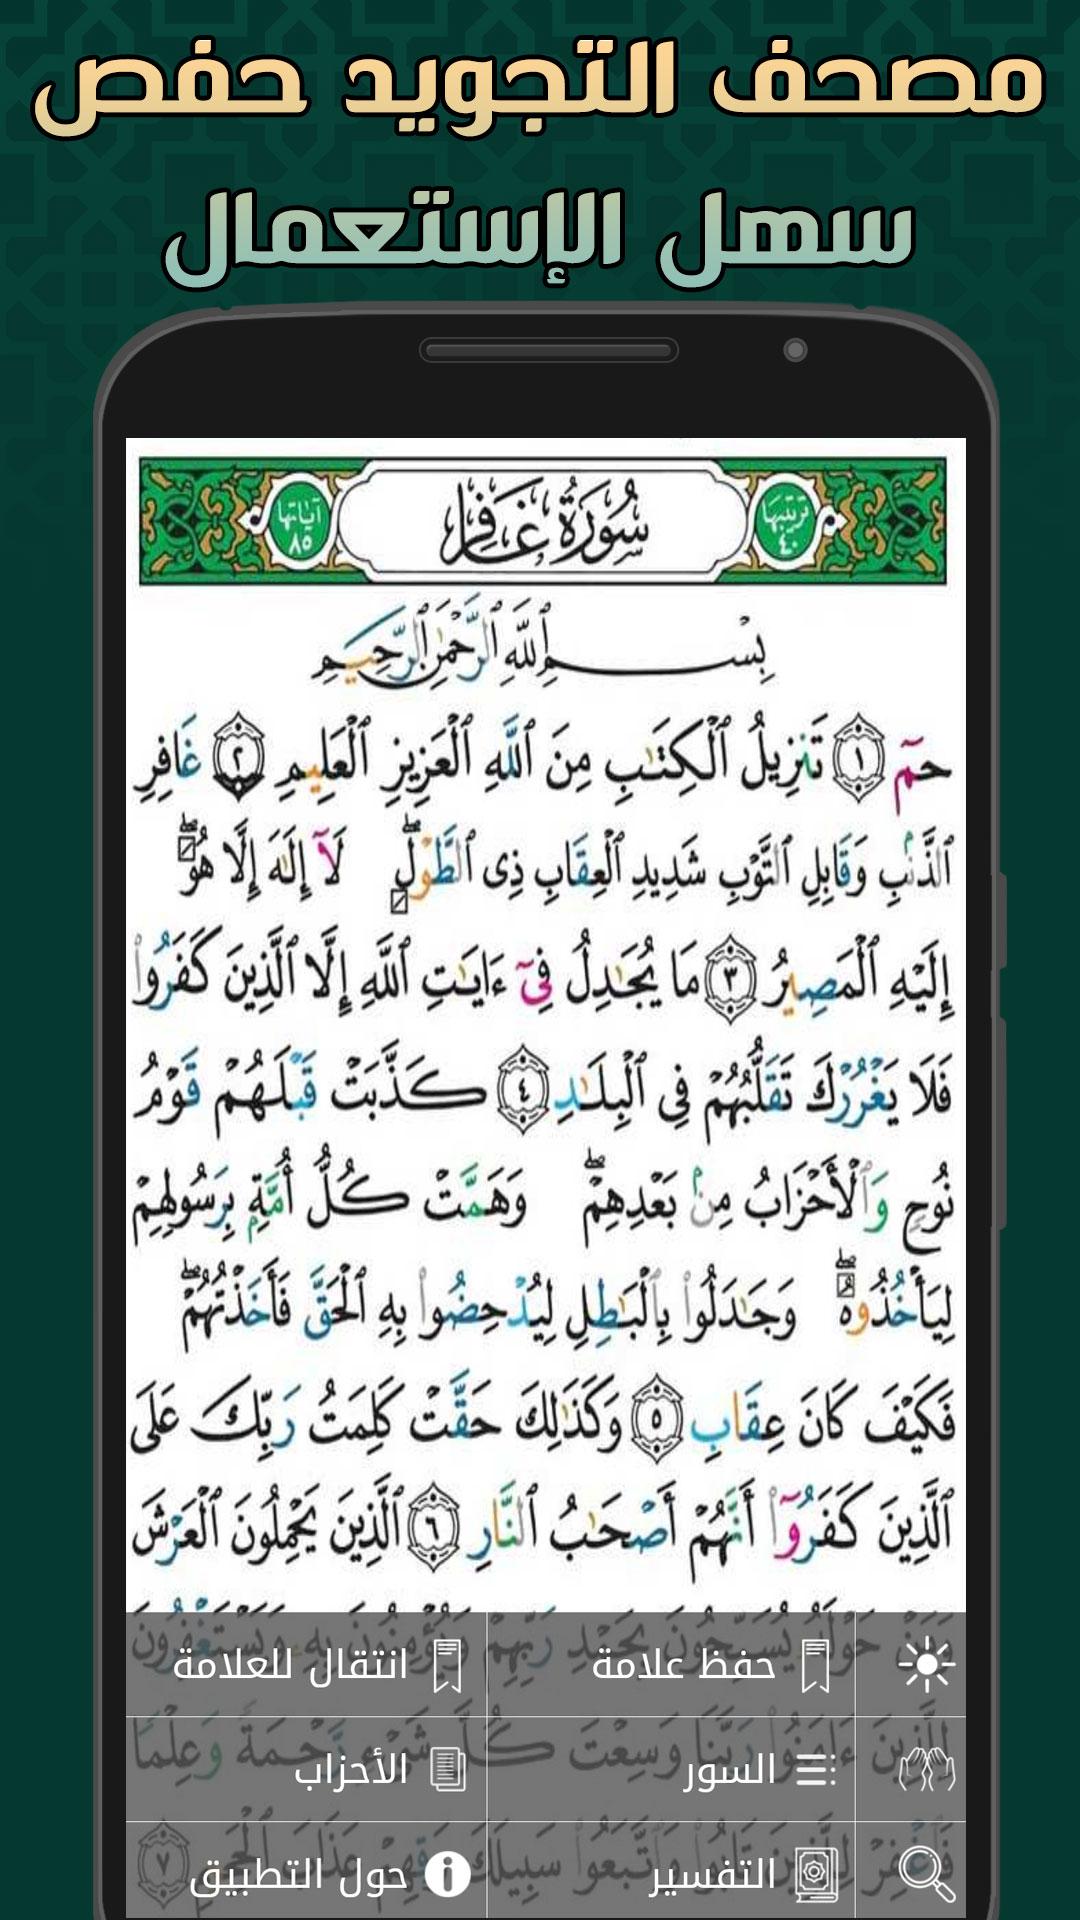 مصحف التجويد حفص
سهل الإستعمال
ترتيبها ٤٠
سُورَةُ غَافِر
آياتها ٨٥
بِسْمِ ٱللَّهِ ٱلرَّحْمَٰنِ ٱلرَّحِيمِ
حمٓ ١ تَنزِيلُ ٱلْكِتَٰبِ مِنَ ٱللَّهِ ٱلْعَزِيزِ ٱلْعَلِيمِ ٢ غَافِرِ
ٱلذَّنۢبِ وَقَابِلِ ٱلتَّوْبِ شَدِيدِ ٱلْعِقَابِ ذِى ٱلطَّوْلِۖ لَآ إِلَٰهَ إِلَّا هُوَۖ
إِلَيْهِ ٱلْمَصِيرُ ٣ مَا يُجَٰدِلُ فِىٓ ءَايَٰتِ ٱللَّهِ إِلَّا ٱلَّذِينَ كَفَرُوا۟
فَلَا يَغْرُرْكَ تَقَلُّبُهُمْ فِى ٱلْبِلَٰدِ ٤ كَذَّبَتْ قَبْلَهُمْ قَوْمُ
نُوحٍ وَٱلْأَحْزَابُ مِنۢ بَعْدِهِمْۖ وَهَمَّتْ كُلُّ أُمَّةٍۭ بِرَسُولِهِمْ
لِيَأْخُذُوهُۖ وَجَٰدَلُوا۟ بِٱلْبَٰطِلِ لِيُدْحِضُوا۟ بِهِ ٱلْحَقَّ فَأَخَذْتُهُمْۖ
فَكَيْفَ كَانَ عِقَابِ ٥ وَكَذَٰلِكَ حَقَّتْ كَلِمَتُ رَبِّكَ عَلَى
ٱلَّذِينَ كَفَرُوٓا۟ أَنَّهُمْ أَصْحَٰبُ ٱلنَّارِ ٦ ٱلَّذِينَ يَحْمِلُونَ ٱلْعَرْشَ
حفظ علامة
انتقال للعلامة
السور
الأحزاب
التفسير
حول التطبيق